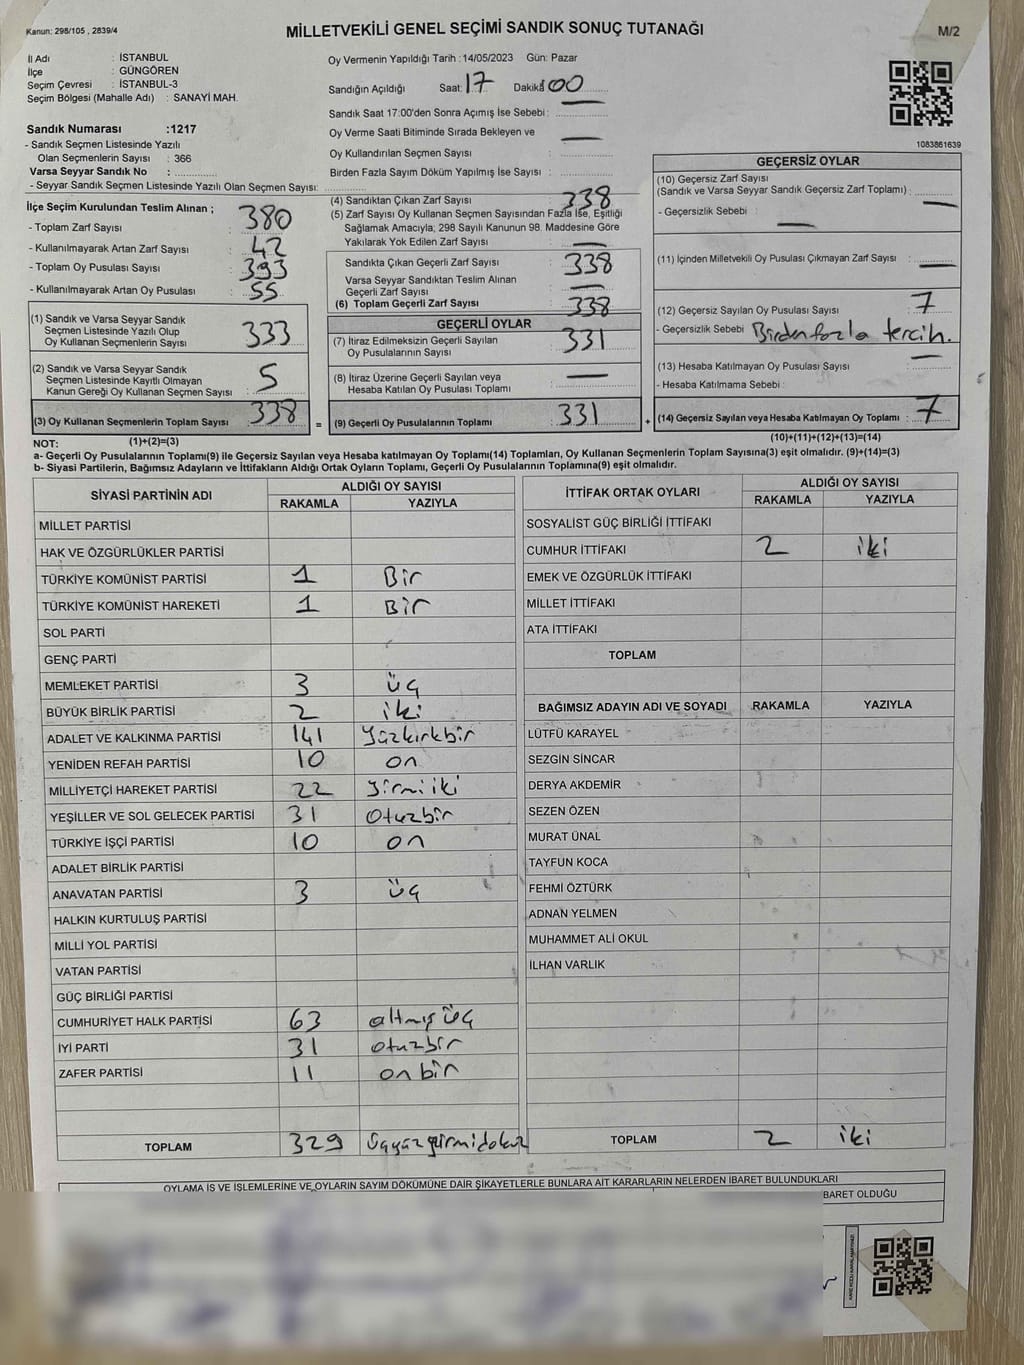 Kanun: 298/105 , 2839/4
MİLLETVEKİLİ GENEL SEÇİMİ SANDIK SONUÇ TUTANAĞI
M/2
İl Adı : İSTANBUL
İlçe : GÜNGÖREN
Seçim Çevresi : İSTANBUL-3
Seçim Bölgesi (Mahalle Adı) : SANAYİ MAH.
Sandık Numarası :1217
- Sandık Seçmen Listesinde Yazılı
Olan Seçmenlerin Sayısı : 366
Varsa Seyyar Sandık No :
- Seyyar Sandık Seçmen Listesinde Yazılı Olan Seçmen Sayısı:
İlçe Seçim Kurulundan Teslim Alınan ;
- Toplam Zarf Sayısı : 380
- Kullanılmayarak Artan Zarf Sayısı : 42
- Toplam Oy Pusulası Sayısı : 393
- Kullanılmayarak Artan Oy Pusulası : 55
(1) Sandık ve Varsa Seyyar Sandık
Seçmen Listesinde Yazılı Olup
Oy Kullanan Seçmenlerin Sayısı : 333
(2) Sandık ve Varsa Seyyar Sandık
Seçmen Listesinde Kayıtlı Olmayan
Kanun Gereği Oy Kullanan Seçmen Sayısı : 5
(3) Oy Kullanan Seçmenlerin Toplam Sayısı : 338
Oy Vermenin Yapıldığı Tarih : 14/05/2023 Gün: Pazar
Sandığın Açıldığı Saat: 17 Dakika: 00
Sandık Saat 17:00'den Sonra Açımış İse Sebebi : —
Oy Verme Saati Bitiminde Sırada Bekleyen ve
Oy Kullandırılan Seçmen Sayısı : —
Birden Fazla Sayım Döküm Yapılmış İse Sayısı :
(4) Sandıktan Çıkan Zarf Sayısı : 338
(5) Zarf Sayısı Oy Kullanan Seçmen Sayısından Fazla İse, Eşitliği
Sağlamak Amacıyla; 298 Sayılı Kanunun 98. Maddesine Göre
Yakılarak Yok Edilen Zarf Sayısı : —
Sandıkta Çıkan Geçerli Zarf Sayısı : 338
Varsa Seyyar Sandıktan Teslim Alınan
Geçerli Zarf Sayısı : —
(6) Toplam Geçerli Zarf Sayısı : 338
GEÇERLİ OYLAR
(7) İtiraz Edilmeksizin Geçerli Sayılan
Oy Pusulalarının Sayısı : 331
(8) İtiraz Üzerine Geçerli Sayılan veya
Hesaba Katılan Oy Pusulası Toplamı : —
= (9) Geçerli Oy Pusulalarının Toplamı : 331 +
1083861639
GEÇERSİZ OYLAR
(10) Geçersiz Zarf Sayısı
(Sandık ve Varsa Seyyar Sandık Geçersiz Zarf Toplamı) : —
- Geçersizlik Sebebi : —
(11) İçinden Milletvekili Oy Pusulası Çıkmayan Zarf Sayısı : —
(12) Geçersiz Sayılan Oy Pusulası Sayısı : 7
- Geçersizlik Sebebi : Birden fazla tercih.
(13) Hesaba Katılmayan Oy Pusulası Sayısı : —
- Hesaba Katılmama Sebebi :
(14) Geçersiz Sayılan veya Hesaba Katılmayan Oy Toplamı : 7
NOT: (1)+(2)=(3)
(10)+(11)+(12)+(13)=(14)
a- Geçerli Oy Pusulalarının Toplamı(9) ile Geçersiz Sayılan veya Hesaba katılmayan Oy Toplamı(14) Toplamları, Oy Kullanan Seçmenlerin Toplam Sayısına(3) eşit olmalıdır. (9)+(14)=(3)
b- Siyasi Partilerin, Bağımsız Adayların ve İttifakların Aldığı Ortak Oyların Toplamı, Geçerli Oy Pusulalarının Toplamına(9) eşit olmalıdır.
SİYASİ PARTİNİN ADI ALDIĞI OY SAYISI
RAKAMLA YAZIYLA
MİLLET PARTİSİ
HAK VE ÖZGÜRLÜKLER PARTİSİ
TÜRKİYE KOMÜNİST PARTİSİ 1 Bir
TÜRKİYE KOMÜNİST HAREKETİ 1 Bir
SOL PARTİ
GENÇ PARTİ
MEMLEKET PARTİSİ 3 üç
BÜYÜK BİRLİK PARTİSİ 2 iki
ADALET VE KALKINMA PARTİSİ 141 Yüzkırkbir
YENİDEN REFAH PARTİSİ 10 on
MİLLİYETÇİ HAREKET PARTİSİ 22 Yirmiiki
YEŞİLLER VE SOL GELECEK PARTİSİ 31 Otuzbir
TÜRKİYE İŞÇİ PARTİSİ 10 on
ADALET BİRLİK PARTİSİ
ANAVATAN PARTİSİ 3 üç
HALKIN KURTULUŞ PARTİSİ
MİLLİ YOL PARTİSİ
VATAN PARTİSİ
GÜÇ BİRLİĞİ PARTİSİ
CUMHURİYET HALK PARTİSİ 63 altmış üç
İYİ PARTİ 31 otuzbir
ZAFER PARTİSİ 11 on bir
TOPLAM 329 üçyüzyirmidokuz
İTTİFAK ORTAK OYLARI ALDIĞI OY SAYISI
RAKAMLA YAZIYLA
SOSYALİST GÜÇ BİRLİĞİ İTTİFAKI
CUMHUR İTTİFAKI 2 iki
EMEK VE ÖZGÜRLÜK İTTİFAKI
MİLLET İTTİFAKI
ATA İTTİFAKI
TOPLAM
BAĞIMSIZ ADAYIN ADI VE SOYADI RAKAMLA YAZIYLA
LÜTFÜ KARAYEL
SEZGİN SİNCAR
DERYA AKDEMİR
SEZEN ÖZEN
MURAT ÜNAL
TAYFUN KOCA
FEHMİ ÖZTÜRK
ADNAN YELMEN
MUHAMMET ALİ OKUL
İLHAN VARLIK
TOPLAM 2 iki
OYLAMA İŞ VE İŞLEMLERİNE VE OYLARIN SAYIM DÖKÜMÜNE DAİR ŞİKAYETLERLE BUNLARA AİT KARARLARIN NELERDEN İBARET BULUNDUKLARI
BARET OLDUĞU